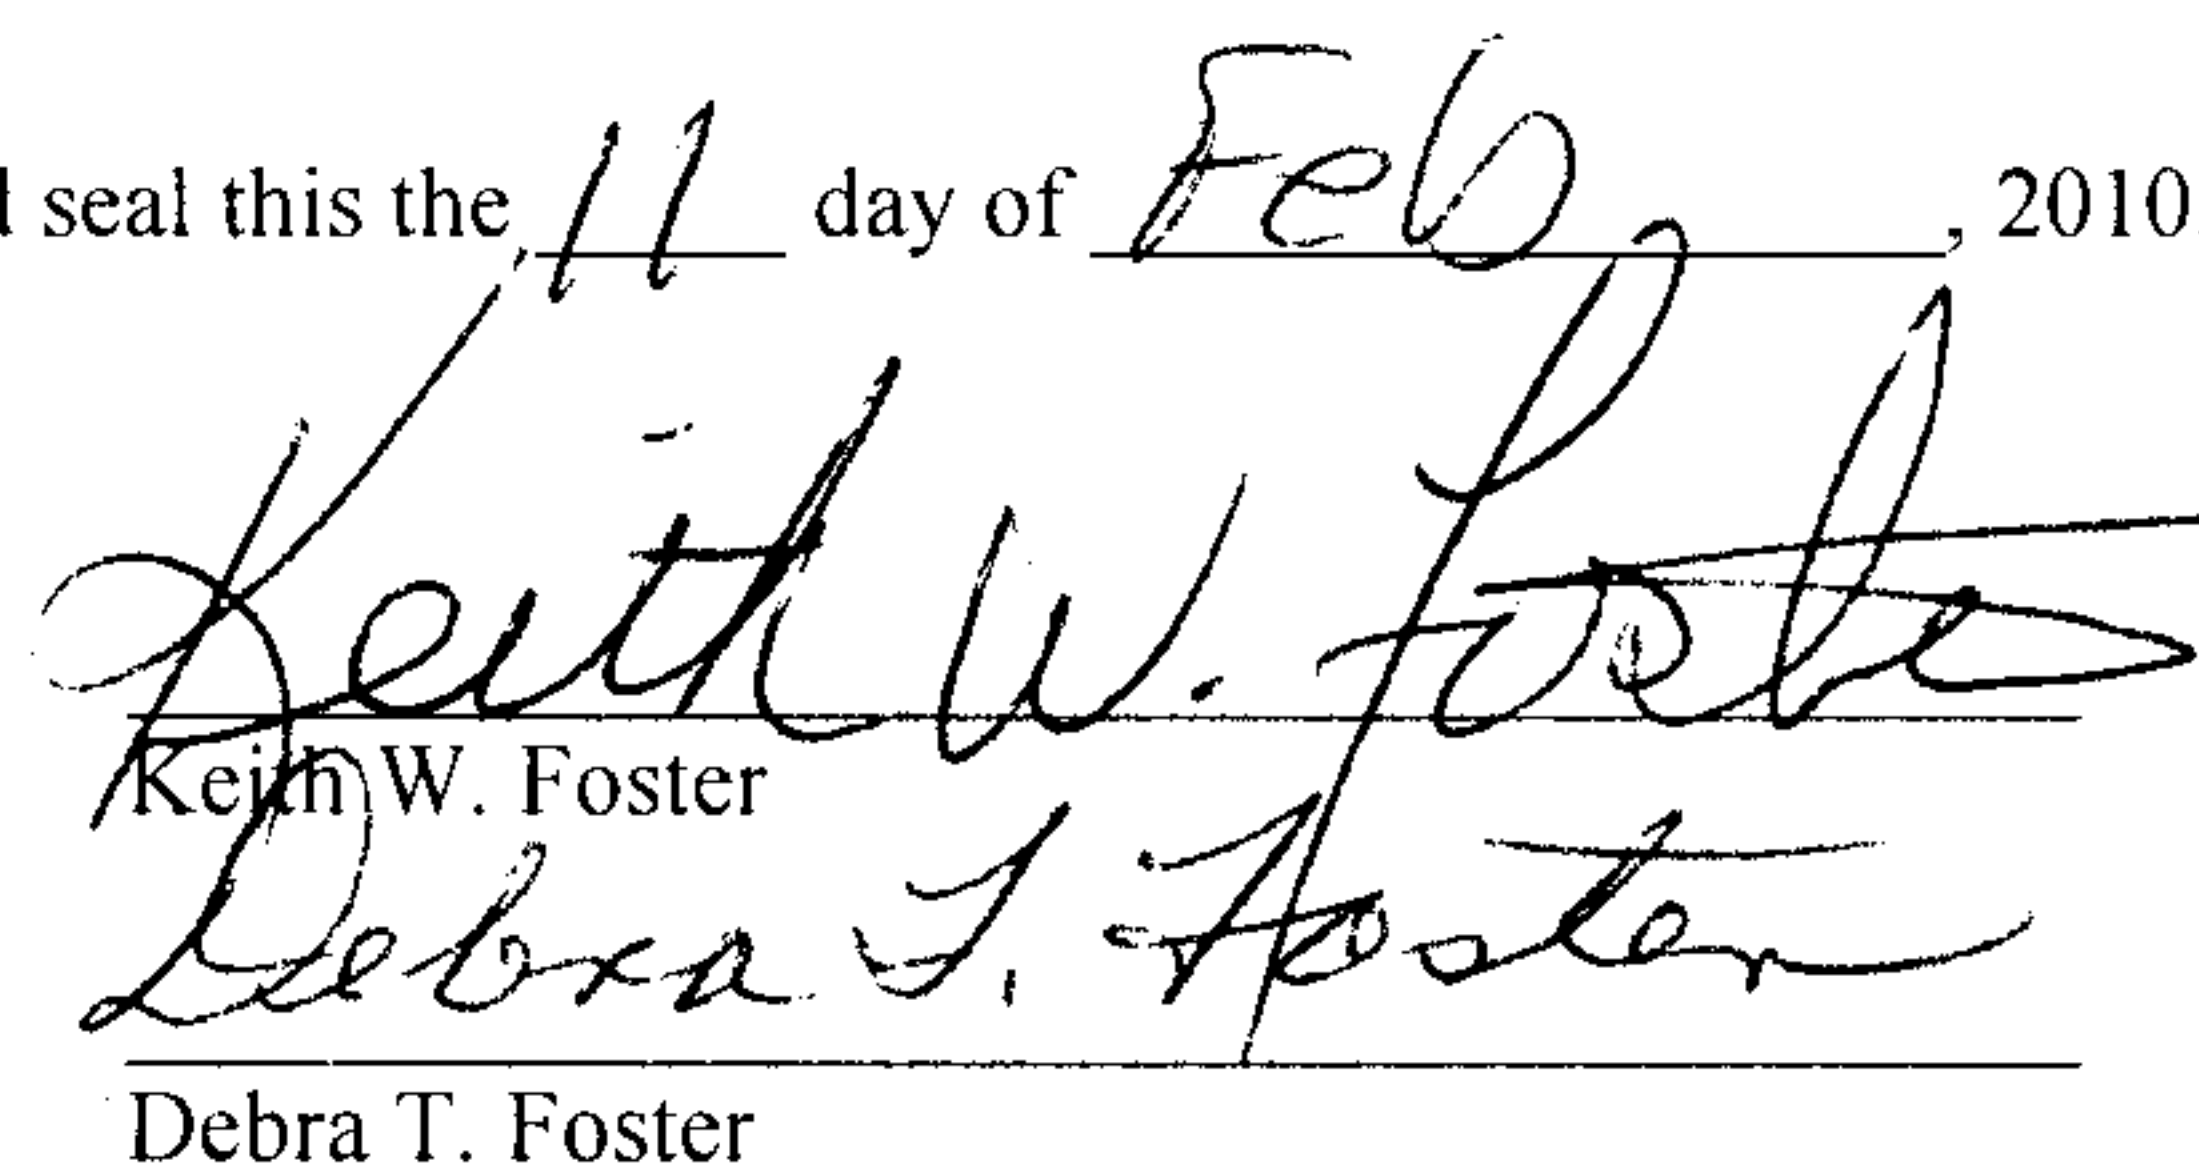 seal this the 11 day of Feb, 2010.
Keith W. Foster
Keith W. Foster
Debra T. Foster
Debra T. Foster